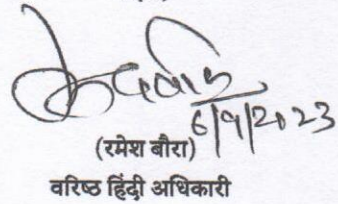 6/9/2023
(रमेश बौरा)
वरिष्ठ हिंदी अधिकारी